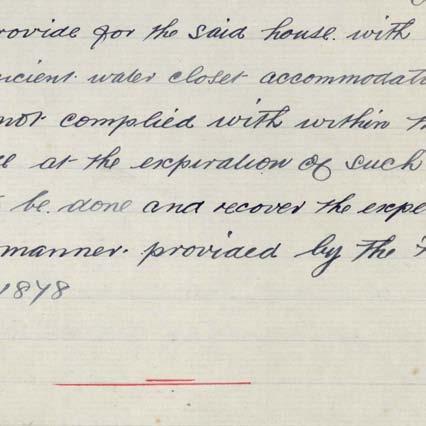 rovide for the said house. with
icient water closet accommodati
not complied with within t
e at the expiration of such
be. done and recover the expe
manner. provided by the
1878